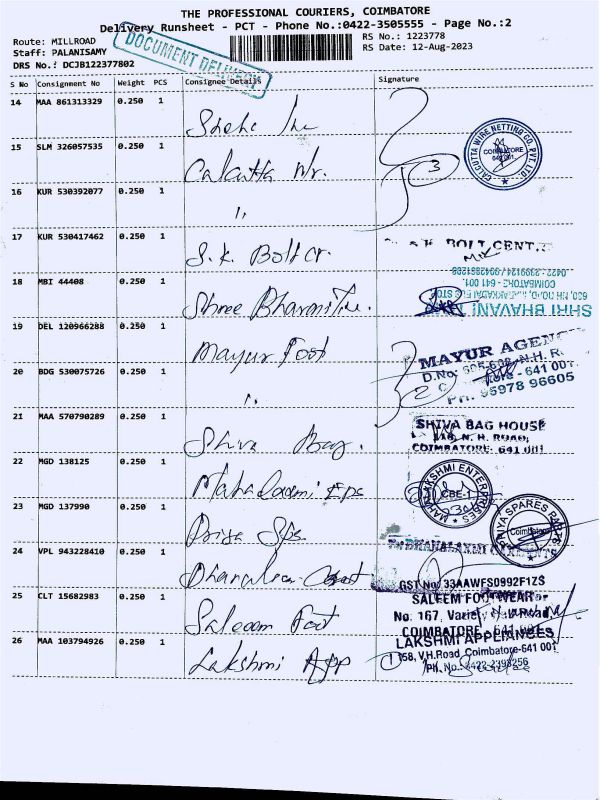 THE PROFESSIONAL COURIERS, COIMBATORE
Delivery Runsheet - PCT - Phone No.:0422-3505555 - Page No.:2
Route: MILLROAD
RS No.: 1223778
Staff: PALANISAMY
RS Date: 12-Aug-2023
DRS No.: DCJB122377802
DOCUMENT DELIVERY
S No Consignment No Weight PCS Consignee Details Signature
14 MAA 861313329 0.250 1
15 SLM 326057535 0.250 1 Calcutta Wr. 3
CALCUTTA WIRE NETTING CO. PVT. LTD.
COIMBATORE
641 001.
16 KUR 530392077 0.250 1 "
17 KUR 530417462 0.250 1 S.K. Bolt cr. S.K. BOLT CENT
18 MBI 44408 0.250 1 Shree Bhavani
SHRI BHAVANI
COIMBATORE - 641 001.
19 DEL 120966288 0.250 1 Mayur Foot
MAYUR AGEN
N.H. R
- 641 001.
PH: 95978 96605
20 BDG 530075726 0.250 1 " 2
21 MAA 570790289 0.250 1 Shiva Bag.
SHIVA BAG HOUSE
N. H. ROAD,
COIMBATORE- 641 001
22 MGD 138125 0.250 1 Mahalaxmi Eps
MAHALAKSHMI ENTERPRISES
CBE-1
23 MGD 137990 0.250 1 Priya Sps.
PRIYA SPARES PARTS
Coimbatore
24 VPL 943228410 0.250 1
DHANALAXMI
25 CLT 15682983 0.250 1 Saleem Foot
GST No: 33AAWFS0992F1ZS
SALEEM FOOTWEAR
No: 167, Variety Hall Road,
COIMBATORE - 641 001.
26 MAA 103794926 0.250 1 Lakshmi App 1
LAKSHMI APPLIANCES
158, V.H.Road, Coimbatore-641 001
Ph.No: 0422-2398256